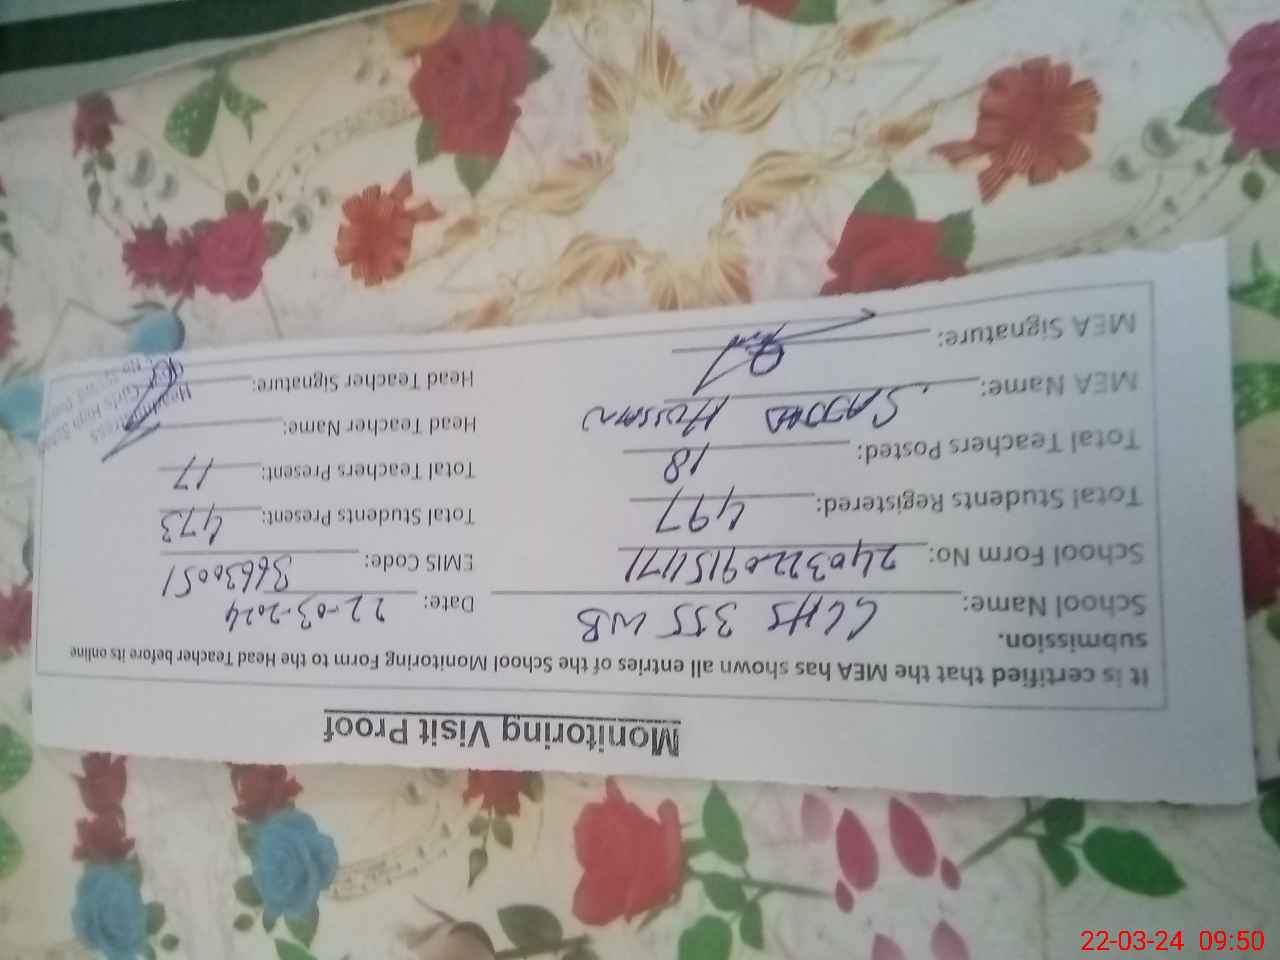 Monitoring Visit Proof
It is certified that the MEA has shown all entries of the School Monitoring Form to the Head Teacher before its online
submission.
School Name: GGHS 355 WB Date: 22-03-2024
School Form No: 24032209151171 EMIS Code: 36630051
Total Students Registered: 497 Total Students Present: 473
Total Teachers Posted: 18 Total Teachers Present: 17
MEA Name: SAJJAD HUSSAIN Head Teacher Name:
MEA Signature: Head Teacher Signature:
Headmistress
Girls High
22-03-24 09:50